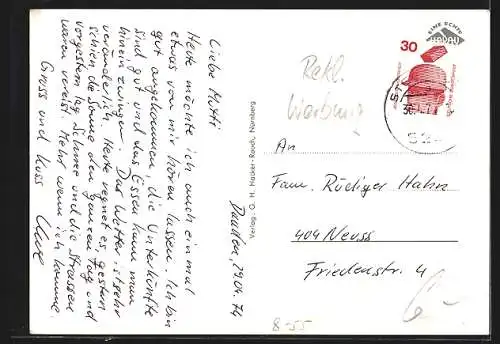 Dauchen, 29.04.74
Liebe Mutti
Heute möchte ich auch einmal
etwas von mir hören lassen. Ich bin
gut angekommen, die Unterkünfte
sind gut und das Essen kann man
hinein zwingen. Das Wetter ist sehr
veränderlich. Heute regnet es, gestern
schien die Sonne den ganzen Tag und
vorgestern lag Schnee und die Strassen
waren vereist. Mehr wenn ich komme.
Gruss und Kuss
Verlag G. H. Hacker-Rauch, Nürnberg
EINE ECHTE
30
Rekl.
Werbung
An
Fam. Rüdiger Hahn
404 Neuss
Friedenstr. 4
8-55